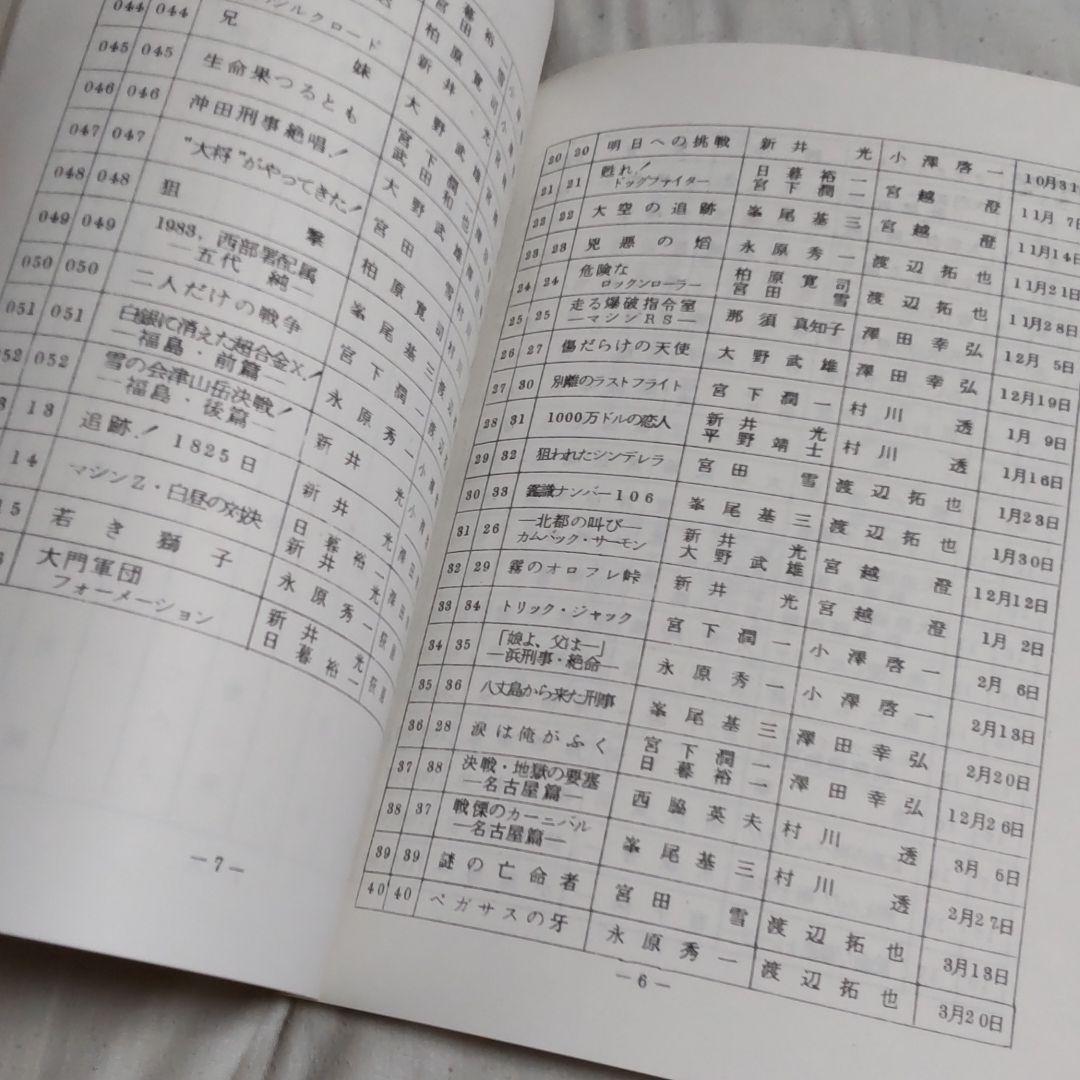 20 20 明日への挑戦 新井光 小澤啓一 10月31日
21 21 甦れ!ドッグファイター 日暮裕一 宮下潤一 宮越澄 11月7日
22 22 大空の追跡 峯尾基三 宮越澄 11月14日
23 23 兇悪の焰 永原秀一 渡辺拓也 11月21日
24 24 危険なロックンローラー 柏原寛司 宮田雪 渡辺拓也 11月28日
25 25 走る爆破指令室―マシンRS― 那須真知子 澤田幸弘 12月5日
26 27 傷だらけの天使 大野武雄 澤田幸弘 12月19日
27 30 別離のラストフライト 宮下潤一 村川透 1月9日
28 31 1000万ドルの恋人 新井光 平野靖士 村川透 1月16日
29 32 狙われたシンデレラ 宮田雪 渡辺拓也 1月23日
30 33 鑑識ナンバー106 峯尾基三 渡辺拓也 1月30日
31 26 ―北都の叫び―カムバック・サーモン 新井光 大野武雄 宮越澄 12月12日
32 29 霧のオロフレ峠 新井光 宮越澄 1月2日
33 34 トリック・ジャック 宮下潤一 小澤啓一 2月6日
34 35 「娘よ、父は―」―浜刑事・絶命― 永原秀一 小澤啓一 2月13日
35 36 八丈島から来た刑事 峯尾基三 澤田幸弘 2月20日
36 28 涙は俺がふく 宮下潤一 日暮裕一 澤田幸弘 12月26日
37 38 決戦・地獄の要塞―名古屋篇― 西脇英夫 村川透 3月6日
38 37 戦慄のカーニバル―名古屋篇― 峯尾基三 村川透 2月27日
39 39 謎の亡命者 宮田雪 渡辺拓也 3月13日
40 40 ペガサスの牙 永原秀一 渡辺拓也 3月20日
―6―
044 044 シルクロード 柏原寛司
045 045 兄妹 新井光
046 046 生命果つるとも 大野武雄
047 047 沖田刑事絶唱! 宮下潤一 武田和也
048 048 "大将"がやってきた! 大野武雄
049 049 狙撃 宮田雪
050 050 1983,西部署配属―五代 純― 柏原寛司
051 051 二人だけの戦争 峯尾基三
052 052 白銀に消えた超合金X!―福島・前篇― 宮下潤一
13 雪の会津山岳決戦!―福島・後篇― 永原秀一
14 追跡!1825日 新井光
マシンZ・白昼の対決 新井光
若き獅子 日暮裕一 新井光
大門軍団フォーメーション 永原秀一
新井光 日暮裕一
―7―